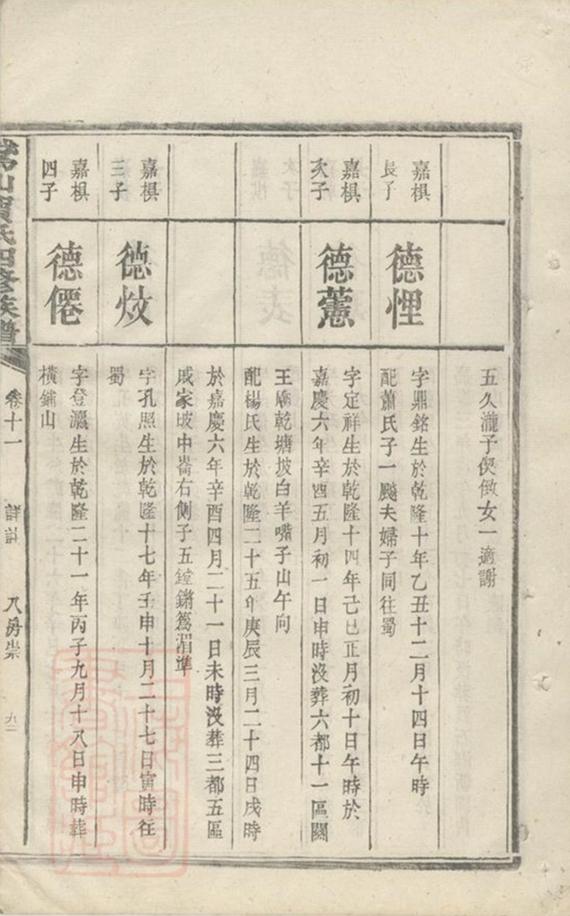 五久瀧子偰傚女一適謝
嘉椇
長子
德悝
字鼎銘生於乾隆十年乙丑十二月十四日午時
配蕭氏子一颷夫婦子同往蜀
嘉椇
次子
德藼
字定祥生於乾隆十四年己巳正月初十日午時於
嘉慶六年辛酉五月初一日申時沒葬六都十一區關
王廟乾塘坡白羊嘴子山午向
配楊氏生於乾隆二十五年庚辰三月二十四日戌時
於嘉慶六年辛酉四月二十一日未時沒葬三都五區
戚家坡中崙右側子五鏜鏘篶湄準
嘉椇
三子
德炆
字孔照生於乾隆十七年壬申十月二十七日寅時往
蜀
嘉椇
四子
德僊
字登瀛生於乾隆二十一年丙子九月十八日申時葬
橫鋪山
氏四修族譜
卷十一
八房崇